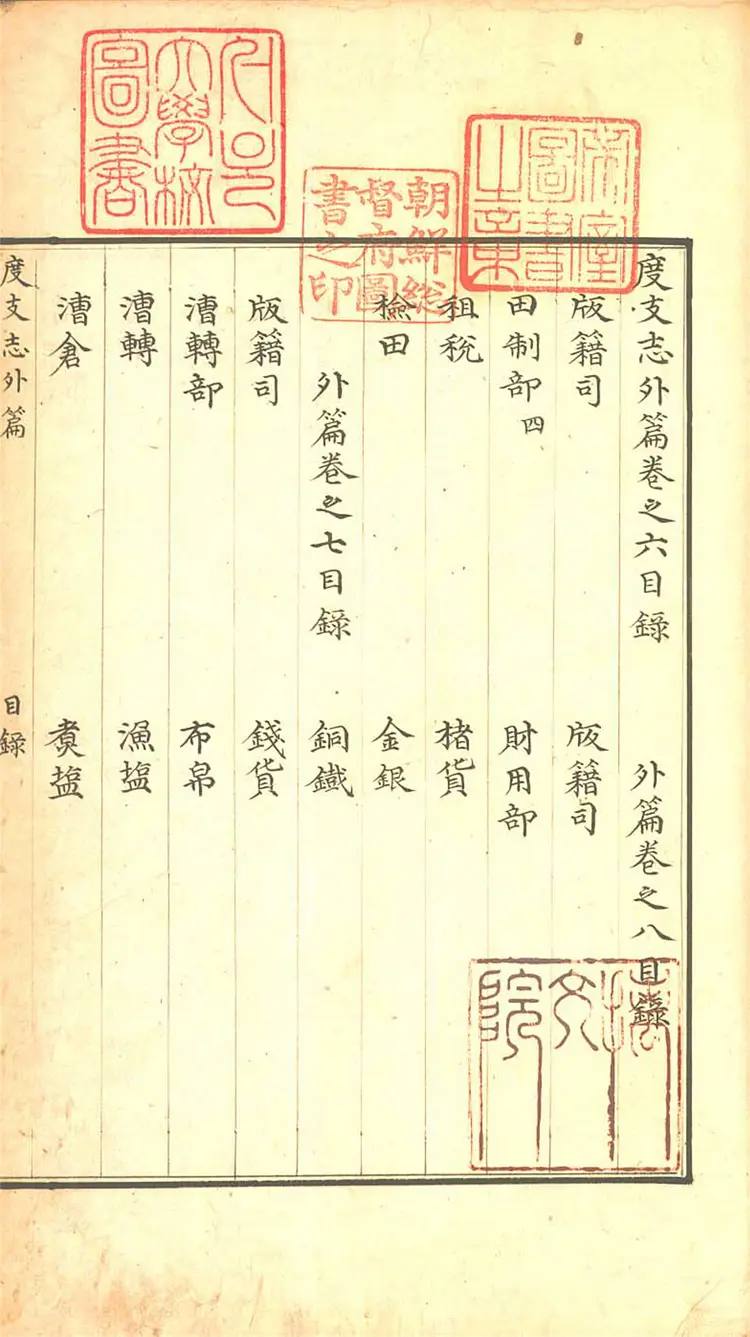 帝室
圖書
之章
朝鮮総
督府圖
書之印
서울
大學校
圖書
度支志外篇卷之六目錄
版籍司
田制部四
租稅
檢田
外篇卷之七目錄
版籍司
漕轉部
漕轉
漕倉
外篇卷之八目錄
版籍司
財用部
楮貨
金銀
銅鐵
錢貨
布帛
漁塩
煑塩
度支志外篇
目錄
摛文院